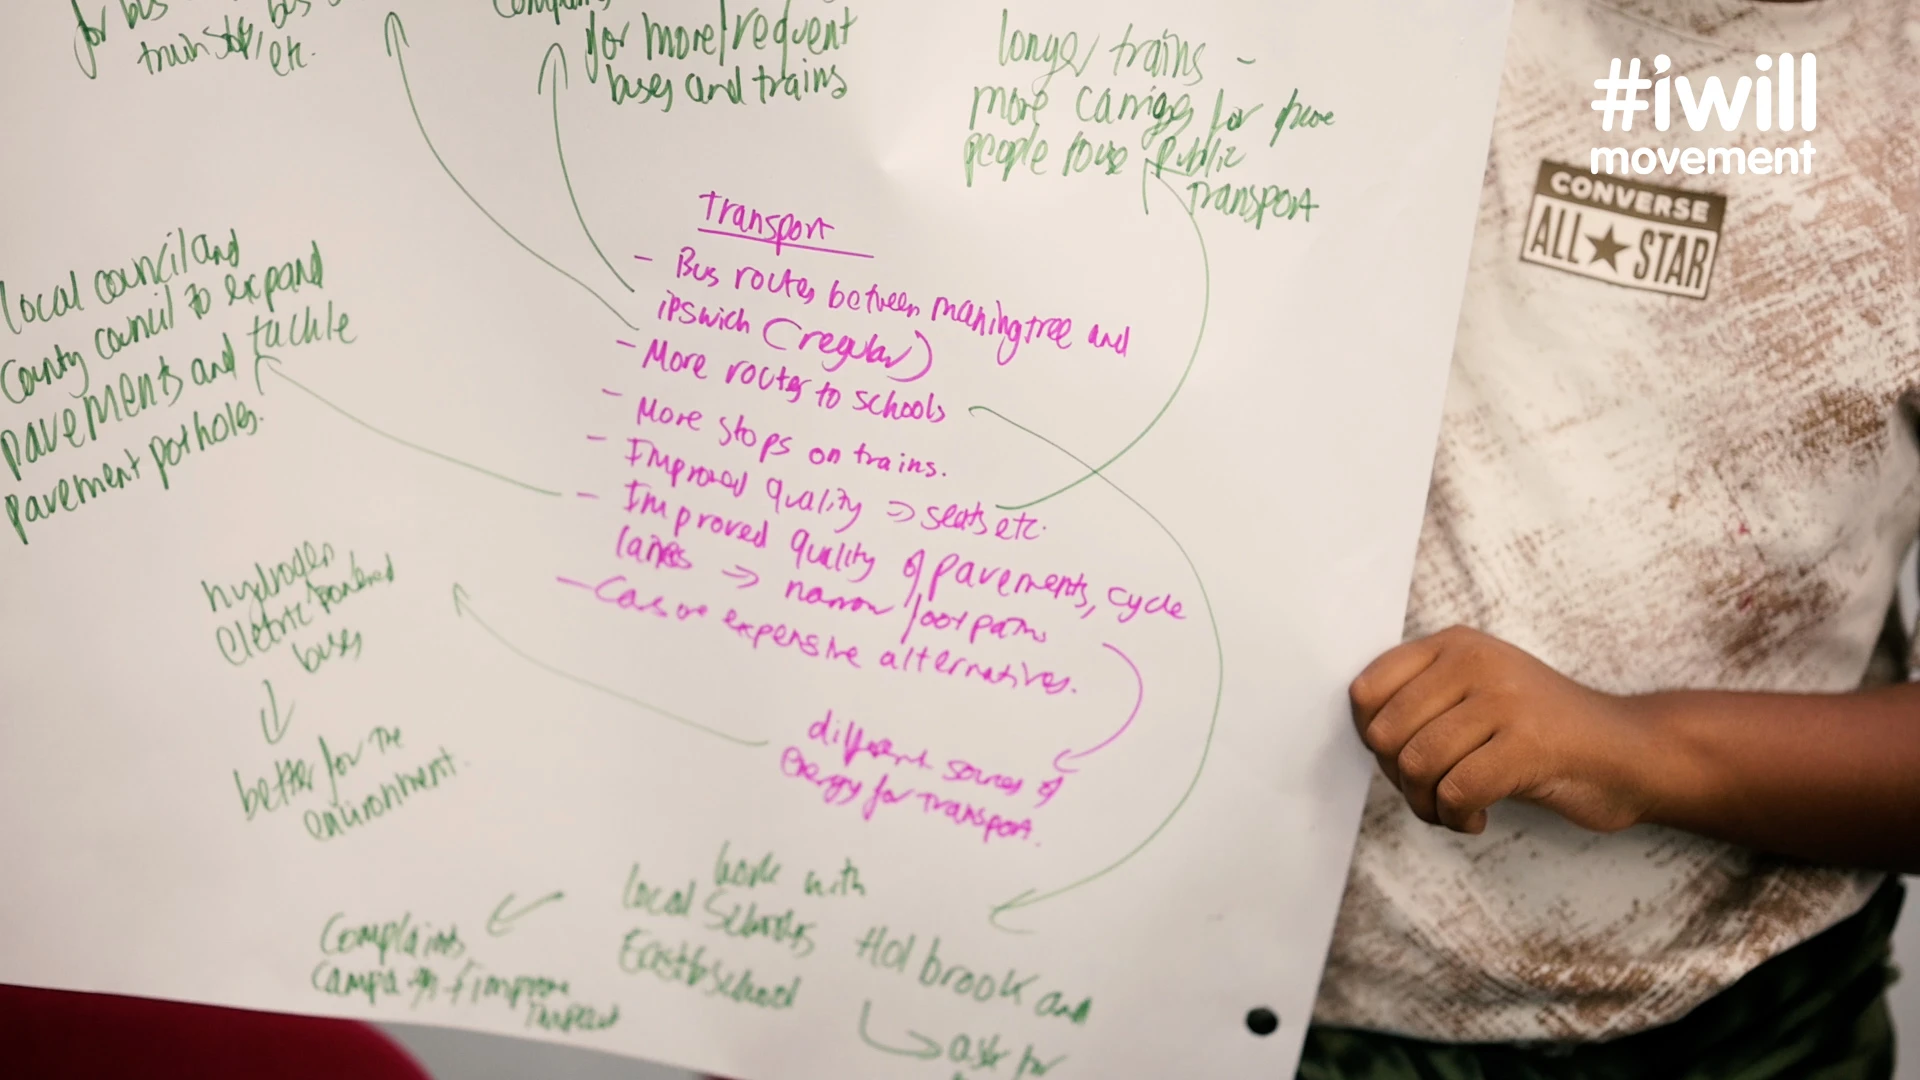 for bus
bus
train stops/
etc.
for more frequent
buses and trains
longer trains -
more carriges for more
people to use public
transport
#iwill
movement
CONVERSE
ALL STAR
Transport
- Bus routes between manningtree and
ipswich (regular)
- More routes to schools
- More stops on trains.
- Improved quality => seats etc.
- Improved quality of pavements, cycle
lanes => narrow footpaths
- expensive alternatives.
different sources of
energy for transport.
local council and
County council to expand
pavements and tackle
pavement potholes.
hydrogen
eletric powered
buses
better for the
environment.
work with
local schools
Holbrook and
ask for
Complaints